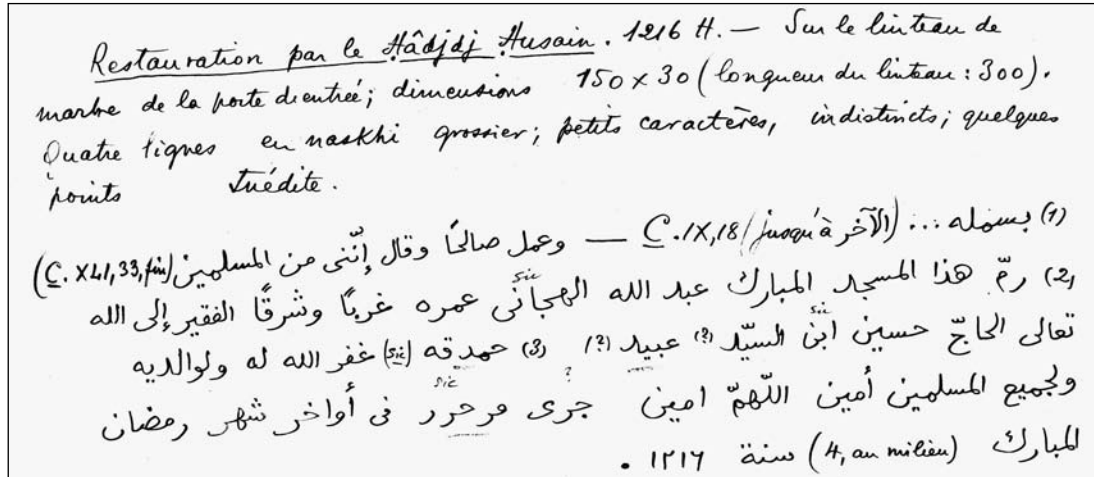 Restauration par le Ḥâdjdj Ḥusain. 1216 H. — Sur le linteau de
marbre de la porte d'entrée; dimensions 150 x 30 (longueur du linteau : 300).
Quatre lignes en naskhi grossier; petits caractères, indistincts; quelques
points Inédite.
(1) بسمله ... (C. IX, 18 (jusqu'à الآخر — وعمل صالحًا وقال إنّنى من المسلمين (C. XLI, 33, fin)
(2) رمّ هذا المسجد المبارك عبد الله الهجانى sic عمره غربًا وشرقًا الفقير إلى الله
تعالى الحاجّ حسين ابن sic السيّد (?) عبيد (?) (3) حمدقه (sic) غفر الله له ولوالديه
ولجميع المسلمين أمين اللّهمّ امين جرى ? مرحرر sic فى أواخر شهر رمضان
المبارك (4, au milieu) سنة ١٢١٦ .